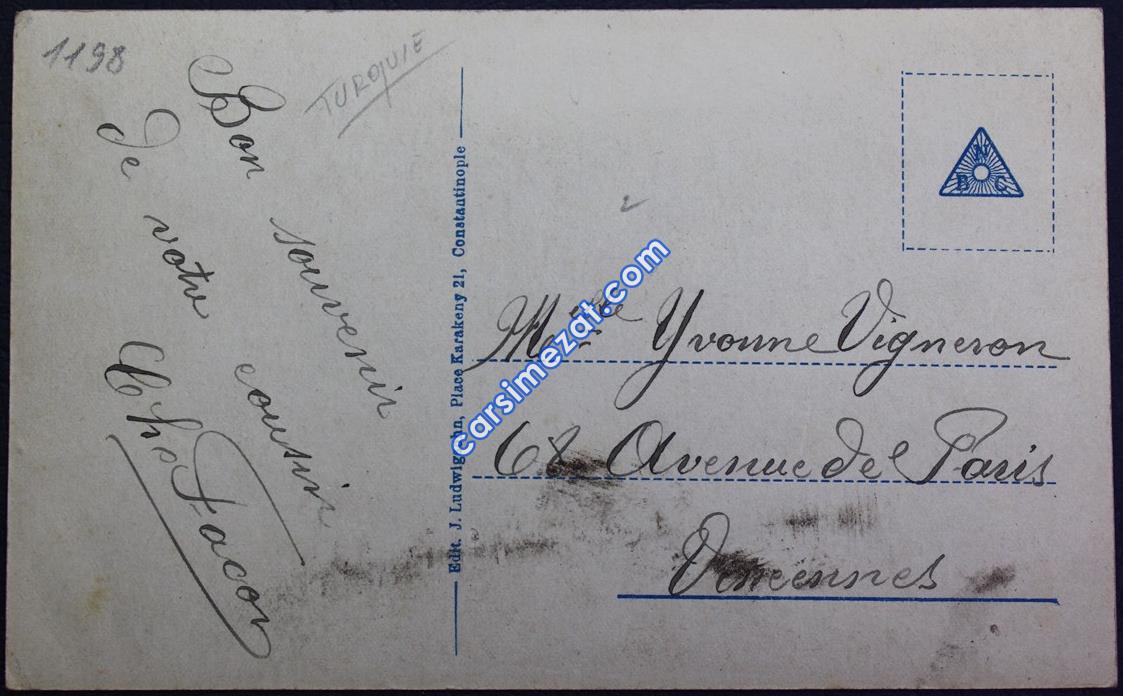 1198
TURQUIE
Bon souvenir
de votre cousin
Chs Facon
Edit. J. Ludwigsohn, Place Karakeny 21, Constantinople
N
B C
Melle Yvonne Vigneron
68 Avenue de Paris
Vincennes
carsimezat.com